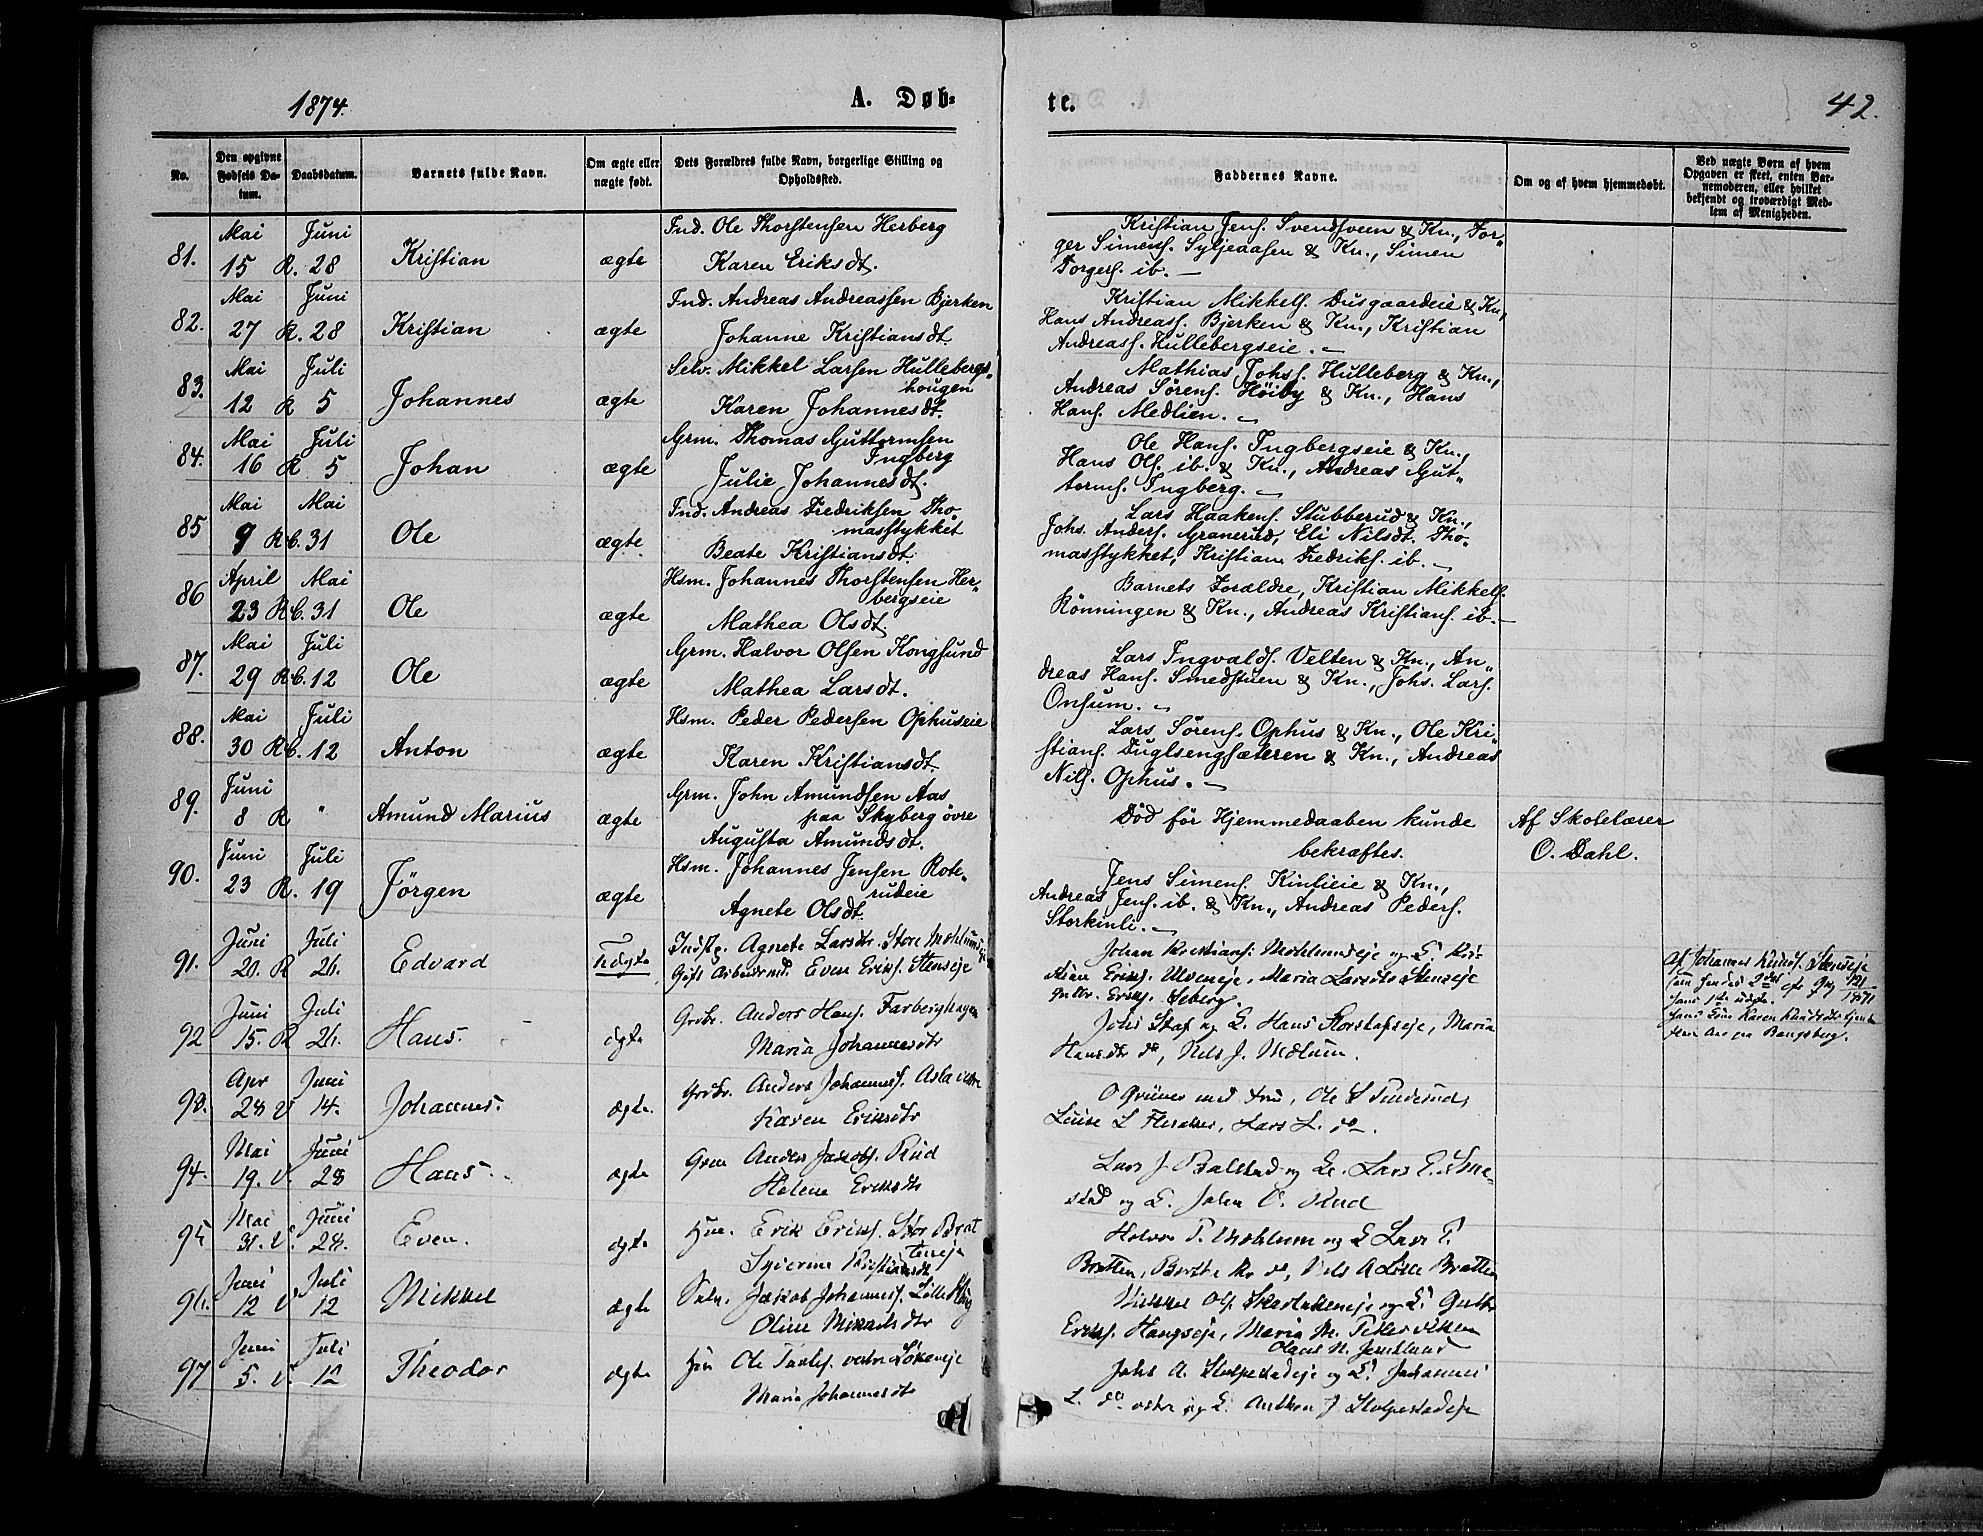 1874.
A. Døb=
te.
42.
No.
Den opgivne Fødsels Datum.
Daabsdatum.
Barnets fulde Navn.
Om ægte eller nægte født.
Dets Forældres fulde Navn, borgerlige Stilling og Opholdssted.
Faddernes Navne.
Om og af hvem hjemmedøbt.
Ved nægte Børn af hvem Opgaven er skeet, enten Barnemoderen, eller hvilket bekjendt og troværdigt Medlem af Menigheden.
81. Mai 15 R. Juni 28 Kristian ægte Ind. Ole Thorstensen Herberg
Karen Eriksdt.
Kristian Jens. Svendsveen & Kn., Tor=
ger Simens. Syljeaasen & Kn., Simen
Torgers. ib. —
82. Mai 27 R. Juni 28 Kristian ægte Ind. Andreas Andreassen Bjerken
Johanne Kristiansdt.
Kristian Mikkels. Dusgaardeie & Kn,
Hans Andreass. Bjerken & Kn., Kristian
Andreass. Hullebergseie. —
83. Mai 12 R Juli 5 Johannes ægte Selv. Mikkel Larsen Hullebergs=
hougen
Karen Johannesdt.
Mathias Johss. Hulleberg & Kn.,
Andreas Sørens. Høiby & Kn., Hans
Hans. Medlien. —
84. Mai 16 R Juli 5 Johan ægte Grm. Thomas Guttormsen
Ingberg
Julie Johannesdt.
Ole Hans. Ingbergseie & Kn.,
Hans Ols. ib. & Kn., Andreas Gut=
torms. Ingberg. —
85 Mai 9 Rb. Mai 31 Ole ægte Ind. Andreas Fredriksen Tho=
masstykket
Beate Kristiansdt.
Lars Haakens. Stubberud & Kn.,
Johs. Anders. Granerud, Eli Nilsdt. Tho=
masstykket, Kristian Fredriks. ib. —
86 April 23 Rb. Mai 31 Ole ægte Hsm. Johannes Thorstensen Her=
bergseie
Mathea Olsdt.
Barnets Foraldre, Kristian Mikkels.
Rönningen & Kn., Andreas Kristians. ib. —
87. Mai 29 Rb. Juli 12 Ole ægte Grm. Halvor Olsen Kongsund
Mathea Larsdt.
Lars Ingvalds. Velten & Kn., An=
dreas Hans. Smedstuen & Kn., Johs. Lars.
Onsum. —
88. Mai 30 Rb. Juli 12 Anton ægte Hsm. Peder Pedersen Ophuseie
Karen Kristiansdt.
Lars Sørens. Ophus & Kn., Ole Kri=
stians. Duglsengsæteren & Kn., Andreas
Nils. Ophus. —
89. Juni 8 R " Amund Marius ægte Grm. John Amundsen Aas
paa Skyberg øvre
Augusta Amundsdt.
Död för Hjemmedaaben kunde
bekræftes.
Af Skolelærer
O. Dahl.
90. Juni 23 R. Juli 19 Jörgen ægte Hsm. Johannes Jensen Rote=
rudeie
Agnete Olsdt.
Jens Simens. Kinlieie & Kn.,
Andreas Jens. ib. & Kn., Andreas Peders.
Storkinli. —
91. Juni 20. R Juli 26. Edvard Uægte Agnete Larsdtr. Store
Gift Even Eriks. Stenseje
Johan
Maria Larsdtr Stenseje
Af Johannes Stenseje
92 Juni 15. R Juli 26. Hans. ægte Anders Hans. Farberghagen
Maria Johannesdtr
Johs Skaf og Hans Maria
Hansdtr do, Nils J. Mælum.
93. Apr 28 V Juni 14. Johannes. ægte. Anders Johannes.
Karen Eriksdtr
O Grüner med Fru, Ole
Louise L Lars L. do.
94. Mai 19. V. Juni 28 Hans. ægte Grm Anders Jakobs. Rud
Helene Eriksdtr
Lars J. Balstad og Lars E. Sme=
stad og Johan O. Rud
95 Mai 31. V. Juni 28. Even. ægte Hsm. Erik Eriks. Stor Brat
teneje
og Lars P.
Bratten, Nils A Lille Bratten
96. Juni 12 V Juli 12 Mikkel ægte Selv. Jakob Johannes. Lille Haug
Oline Mikkelsdtr
Mikkel Ols.
Eriks. Haugseje, Maria M.
97 Juni 5. V. Juli 12 Theodor ægte Hsm Ole
Maria Johannesdtr
Johs A. Stolpestadeje og Johannes
L. do Anthon J Stolpestadeje